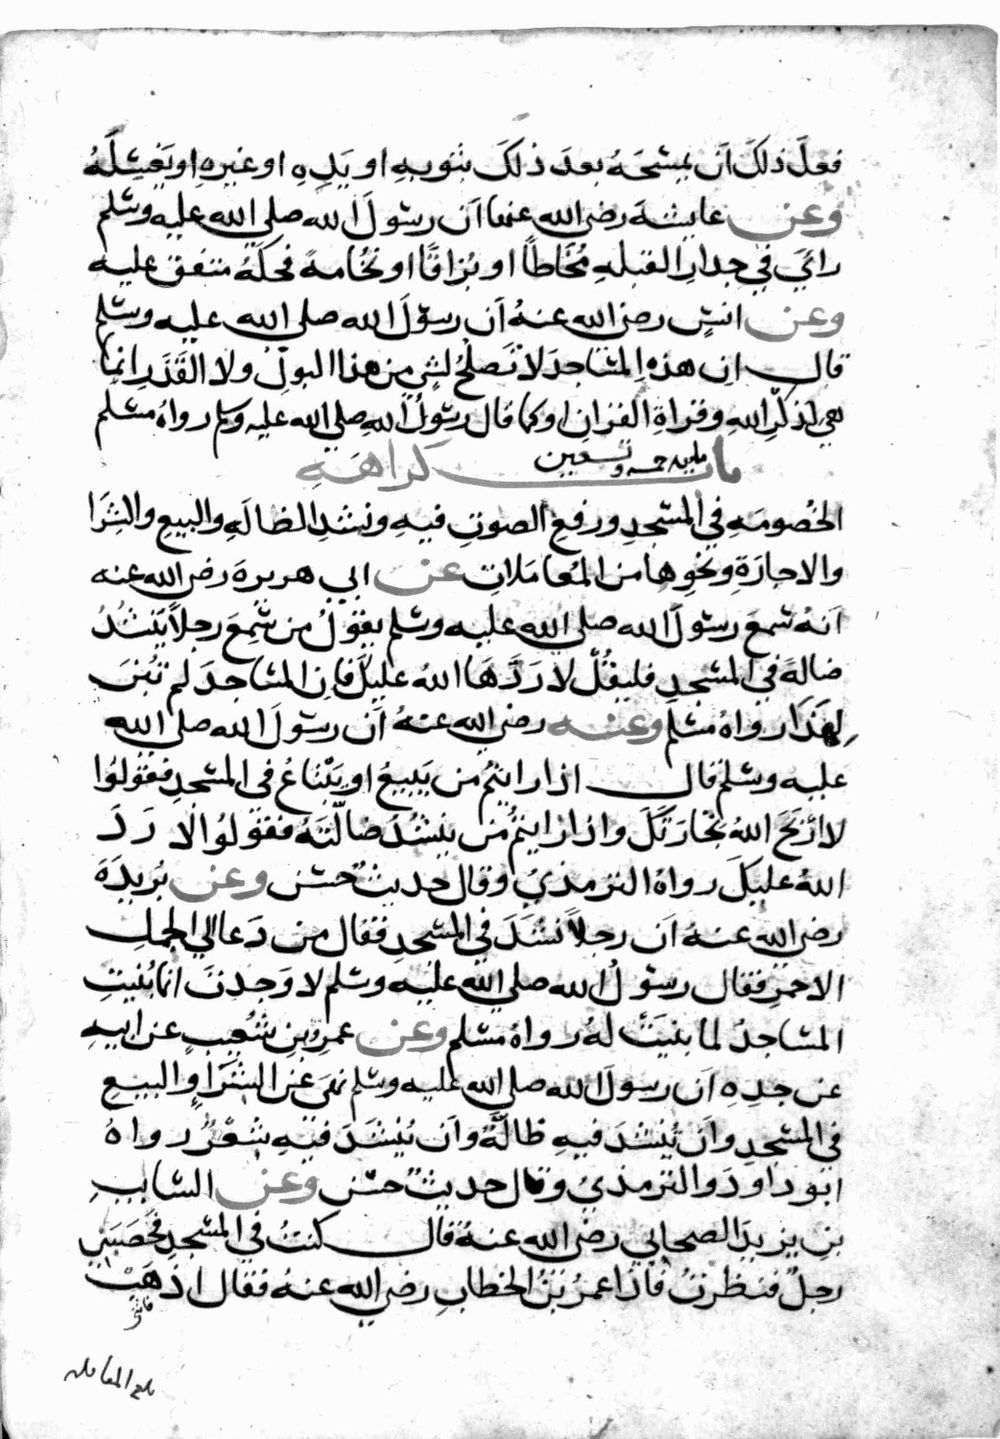 فعلَ ذلكَ اَن يمسَحَهُ بعدَ ذلكَ بثوبهِ او يَدِهِ او غيرِهِ او يَغسِلَهُ
وعن عايشةَ رضي الله عنها اَن رسُولَ الله صلى الله عليه وسَلم
رائَي في جدارِ القبلهِ مُخَاطاً او بُزاقًا او نخُامةً فحكَّهُ متفق عليه
وعن انسٍ رضي الله عنهُ اَن رسوْلَ الله صلى الله عليه وسلم
قال ان هذهِ المسَاجدَ لا تَصلحُ لشي من هذا البولِ ولا القَذَرِ انما
هي لذكرِ اللهِ وقراةِ القرانِ او كما قال رسُولُ اللهِ صلي الله عليه وسلم رواهُ مسْلم
باب كراهَهِ
مايه خمسه وتسعين
الخصُومَهِ في المسْجدِ ورفعِ الصوتِ فيهِ ونشدِ الظالَهِ والبيعِ والشِرَا
والاجارَةِ ونحوِها من المُعامَلاتِ عن ابي هريرةَ رضي الله عنه
اَنهُ سْمعَ رسوْلَ الله صلى الله عليه وسْلم يقوْلُ من سْمِعَ رجلاً يَنشُدُ
ضالةً في المسْجدِ فليقُلْ لا رَدَّهَا اللهُ عليكَ فاِن المسَاجدَ لم تُبنَ
لِهَذَا رواهُ مسْلم وعنه رضي الله عنهُ اَن رسوْلَ الله صلى الله
عليه وسْلم قال اذا رايتُم من يَبيعُ او يَبْتاعُ في المسْجدِ فقوُلوُا
لا اَرْبَحَ اللهُ تجَارَتَكَ واذا رَايتمُ من ينشُدُ ضالَّتَهُ فقوُلوُا لا رَدَ
اللهُ عليكَ رواهُ الترمذيُ وقال حَديثٌ حسَن وعن بُرَيدَةَ
رضي الله عنهُ اَن رجلاً نشَدَ في المسْجدِ فقال من دَعا اليَ الجملِ
الاحمرِ فقال رسوْلُ الله صلي الله عليه وسْلم لا وَجدْتَ انما بُنيتِ
المسَاجدُ لما بنيَتْ لهُ رواهُ مسْلم وعن عمرِو بنِ شُعيبٍ عن ابيهِ
عن جدِهِ اَن رسوْلَ الله صلى الله عليه وسْلم نهَى عن الشَرَا والبيعِ
في المسْجدِ واَن تُنشَدَ فيهِ ظالَّةٌ واَن يُنشَدَ فيهِ شعْرٌ رواهُ
ابو داودَ والترمذيُ وقال حديثٌ حسَن وعن السَايبِ
بنِ يزيدَ الصحابيِ رضي الله عنهُ قال كنتُ في المسْجدِ فحَصَبَنيِ
رجلٌ فنظرتُ فاذا عمرُ بنُ الخطابِ رضي الله عنهُ فقال اذهَبْ
فاتني
بلغ المقابله